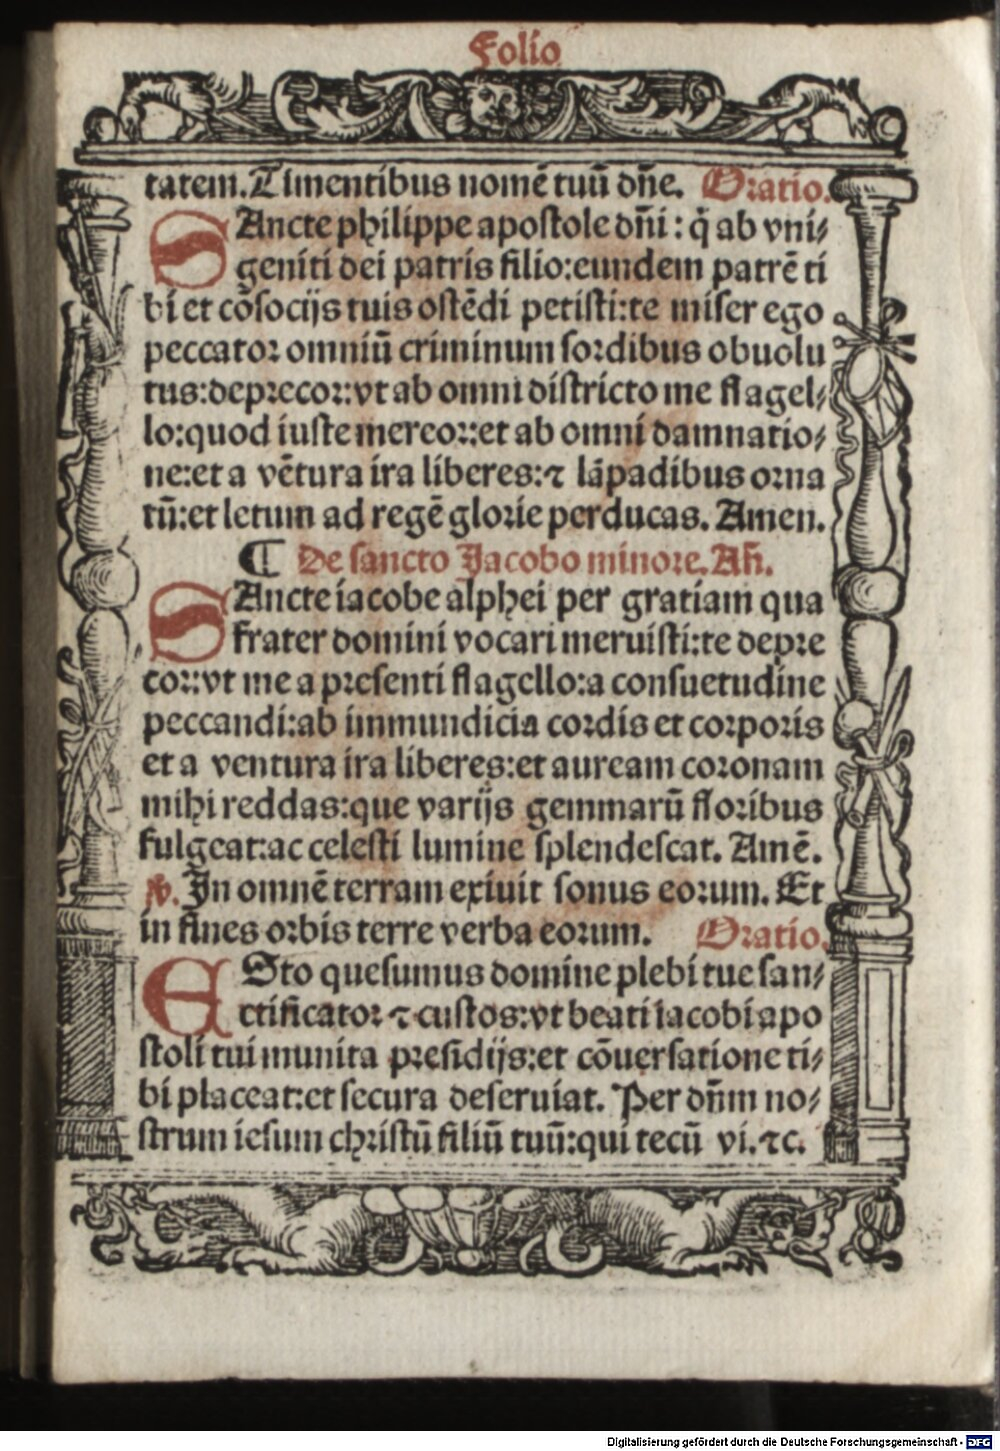 Folio
tatem. Timentibus nomē tuū dn̄e. Oratio.
SAncte philippe apostole dn̄i : q̄ ab vni⸗
geniti dei patris filio:eundem patrē ti
bi et cōsocijs tuis ostēdi petisti:te miser ego
peccator omniū criminum sordibus obuolu
tus:deprecor:vt ab omni districto me flagel⸗
lo:quod iuste mereor:et ab omni damnatio⸗
ne:et a vētura ira liberes:⁊ lāpadibus orna
tū:et letum ad regē glorie perducas. Amen.
¶ De sancto Jacobo minore. Añ.
SAncte iacobe alphei per gratiam qua
frater domini vocari meruisti:te depre
cor:vt me a presenti flagello:a consuetudine
peccandi:ab immundicia cordis et corporis
et a ventura ira liberes:et auream coronam
mihi reddas:que varijs gemmarū floribus
fulgeat:ac celesti lumine splendescat. Amē.
℣. In omnē terram exiuit sonus eorum. Et
in fines orbis terre verba eorum. Oratio.
ESto quesumus domine plebi tue san⸗
ctificator ⁊ custos:vt beati iacobi apo
stoli tui munita presidijs:et cōuersatione ti⸗
bi placeat:et secura deseruiat. Per dn̄m no⸗
strum iesum christū filiū tuū:qui tecū vi. ⁊c.
Digitalisierung gefördert durch die Deutsche Forschungsgemeinschaft - DFG